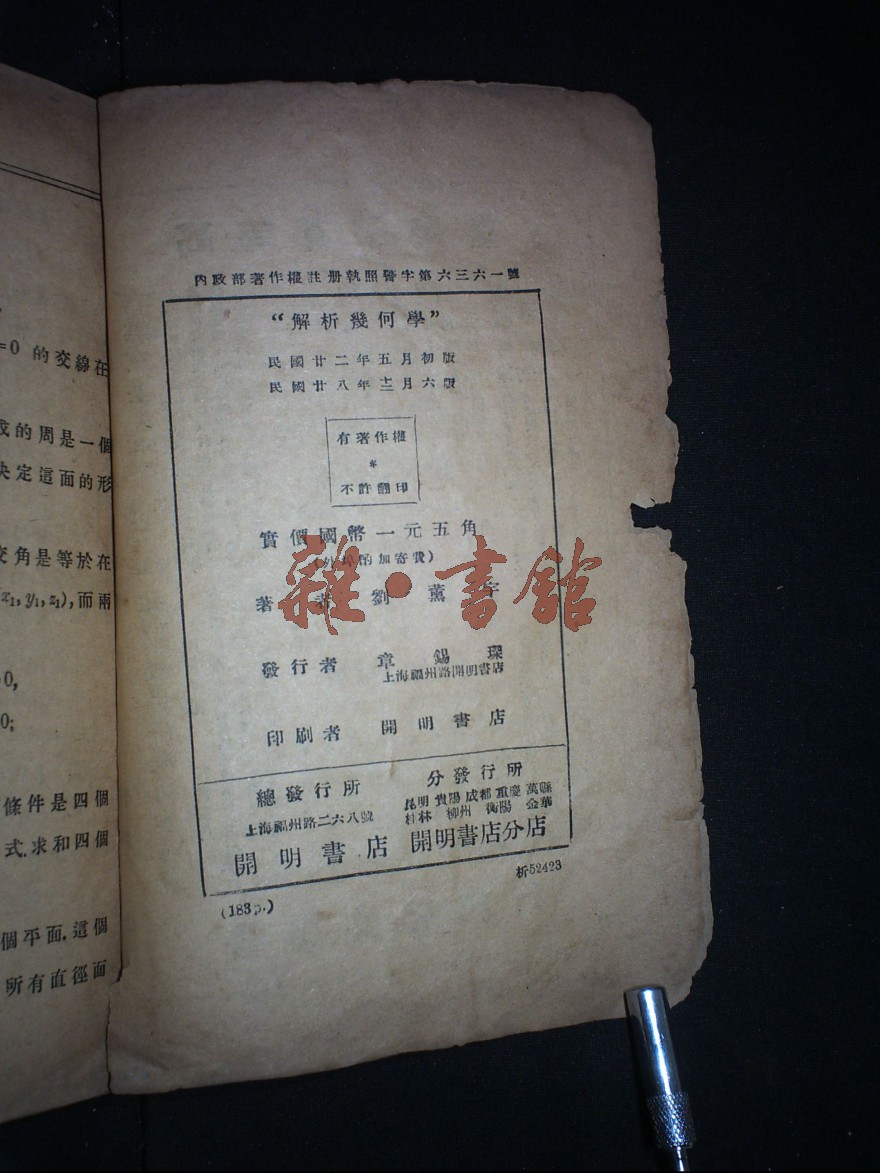 =0 的交線在
成的周是一個
決定這面的形
交角是等於在
x₁, y₁, z₁),而兩
0,
0;
條件是四個
式.求和四個
個平面.這個
所有直徑面
內政部著作權註册執照警字第六三六一號
“解析幾何學”
民國廿二年五月初版
民國廿八年十二月六版
有著作權
*
不許翻印
實價國幣一元五角
(外埠酌加寄費)
著者 劉薰宇
雜·書館
發行者 章錫琛
上海福州路開明書店
印刷者 開明書店
總發行所
上海福州路二六八號
開明書店
分發行所
昆明 貴陽 成都 重慶 萬縣
桂林 柳州 衡陽 金華
開明書店分店
析52423
(183p.)